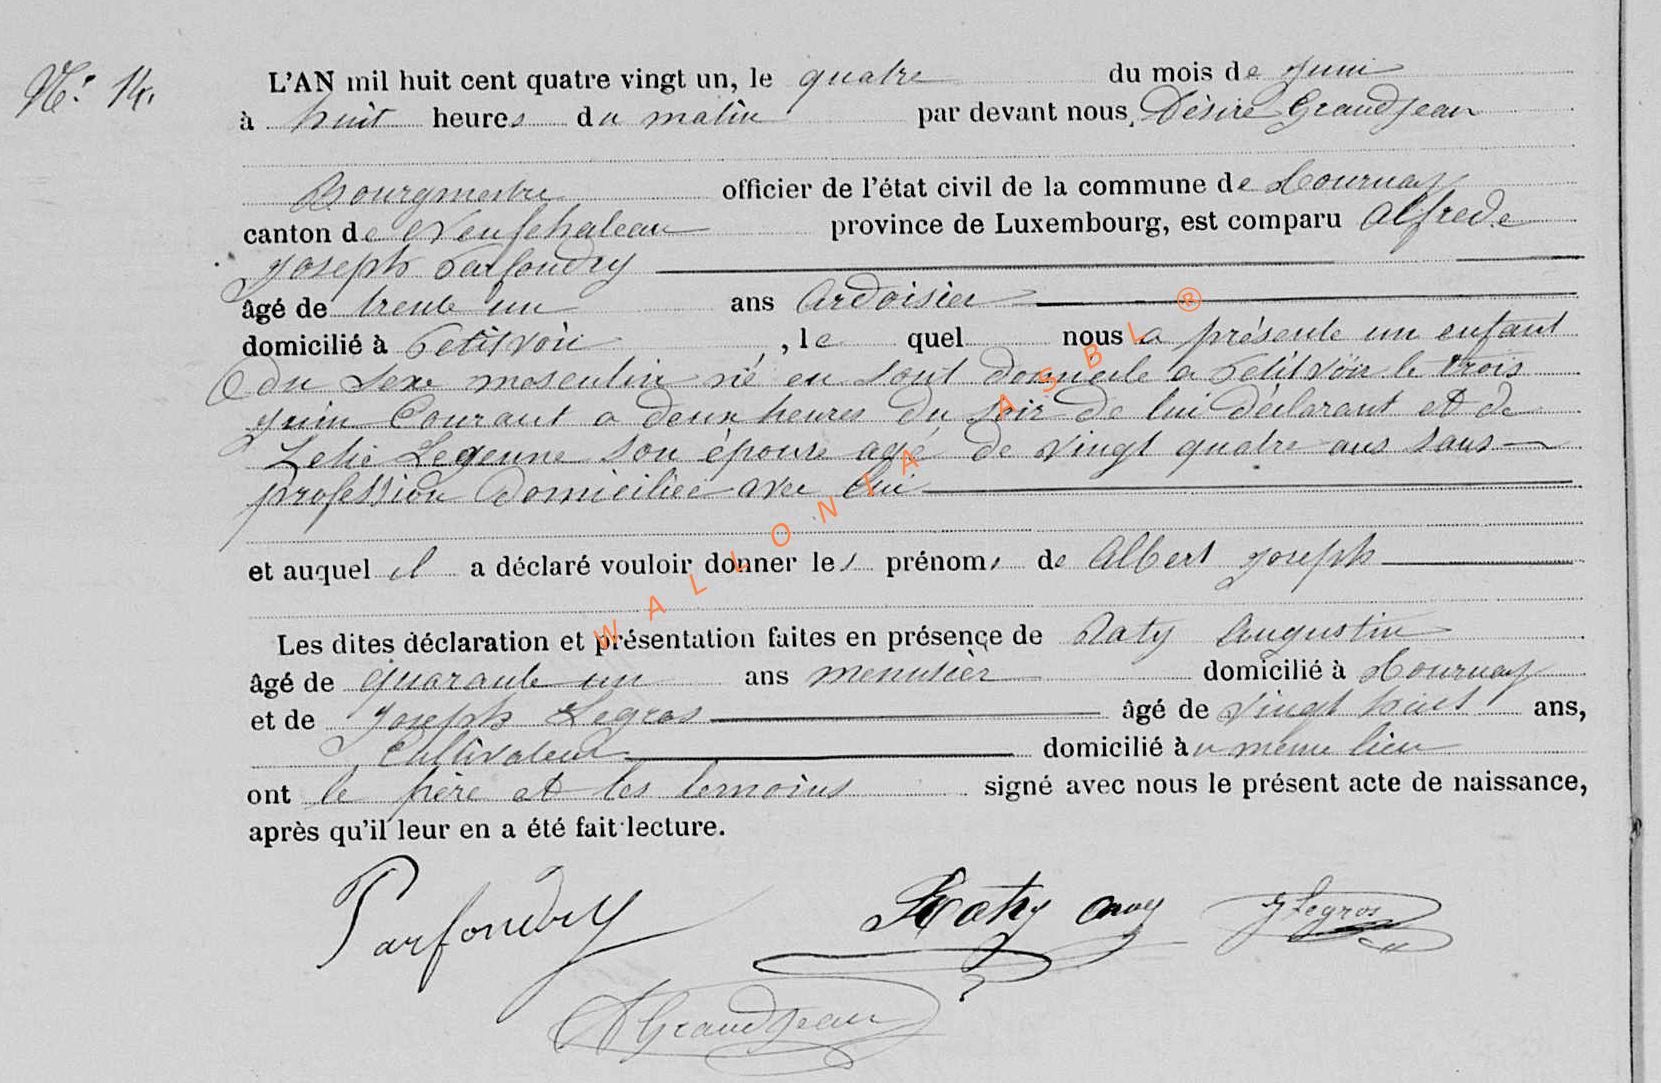 N.° 14.
L'AN mil huit cent quatre vingt un, le quatre du mois de Juin
à huit heures du matin par devant nous, Désiré Grandjean
Bourgmestre officier de l'état civil de la commune de Tournay
canton de Neufchateau province de Luxembourg, est comparu Alfrede
Joseph Parfondry
âgé de trente un ans Ardoisier
domicilié à Petitvoir, le quel nous a présenté un enfant
du sexe masculin né en sont domicile a Petitvoir le trois
Juin Courant a deux heures du soir de lui déclarant et de
Zelie Lejeune son épouse agé de vingt quatre ans sans
profession domiciliée avec lui
et auquel il a déclaré vouloir donner les prénoms de Albert Joseph
Les dites déclaration et présentation faites en présence de Naty Augustin
âgé de quarante un ans menusièr domicilié à Tournay
et de Joseph Legros âgé de vingt huit ans,
Cultivateur domicilié à u même lieu
ont le père et les temoins signé avec nous le présent acte de naissance,
après qu'il leur en a été fait lecture.
Parfondry
J Legros
D Grandjean
WALLONIA ASBL ®